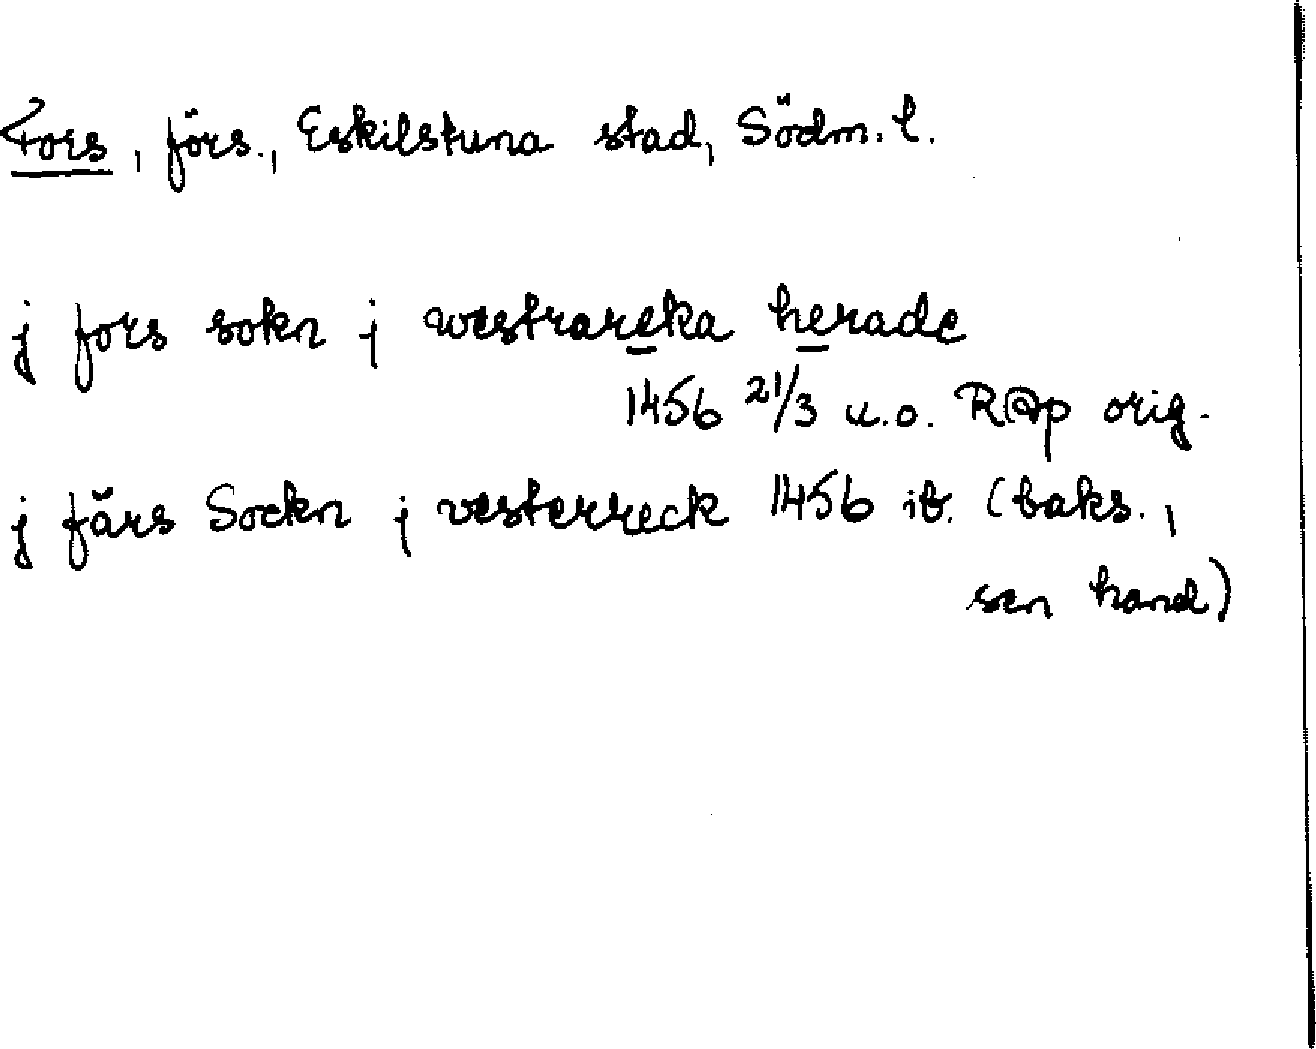 Fors, förs., Eskilstuna stad, Södm. l.
j fors sokn j westrareka herade
1456 21/3 u.o. RAp orig.
j färs Sockn j vesterreck 1456 ib. (baks.,
sen hand)